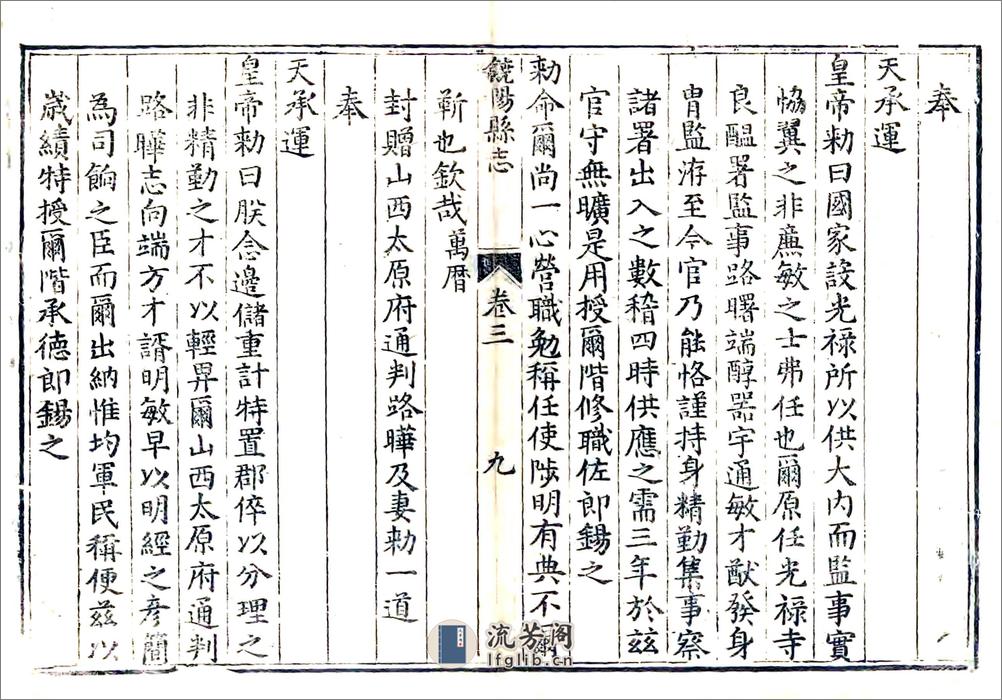 奉
天承運
皇帝勅曰國家設光禄所以供大内而監事實
恊翼之非亷敏之士弗任也爾原任光禄寺
良醖署監事路曙端醇器宇通敏才猷發身
胄監洊至今官乃能恪謹持身精勤集事察
諸署出入之數稽四時供應之需三年於兹
官守無曠是用授爾階修職佐郎錫之
勅命爾尚一心營職勉稱任使陟明有典不爾
饒陽縣志
卷三
九
靳也欽哉萬曆
封贈山西太原府通判路曄及妻勅一道
奉
天承運
皇帝勅曰朕念邉儲重計特置郡倅以分理之
非精勤之才不以輕畀爾山西太原府通判
路曄志向端方才諝明敏早以明經之彦簡
為司餉之臣而爾出納惟均軍民稱便兹以
歲績特授爾階承德郎錫之
流芳阁
lfglib.cn